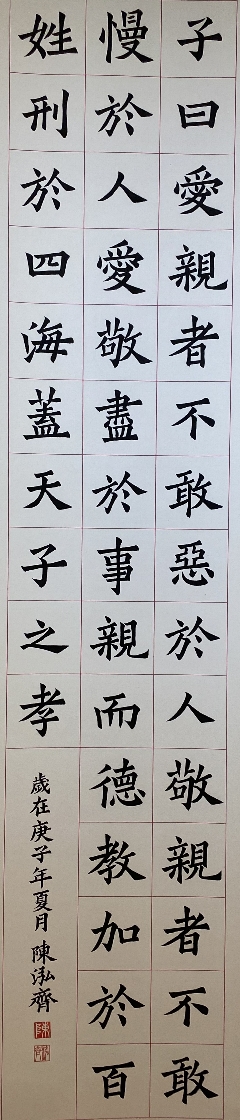 子曰愛親者不敢惡於人敬親者不敢
慢於人愛敬盡於事親而德教加於百
姓刑於四海蓋天子之孝
歲在庚子年夏月陳泓齊